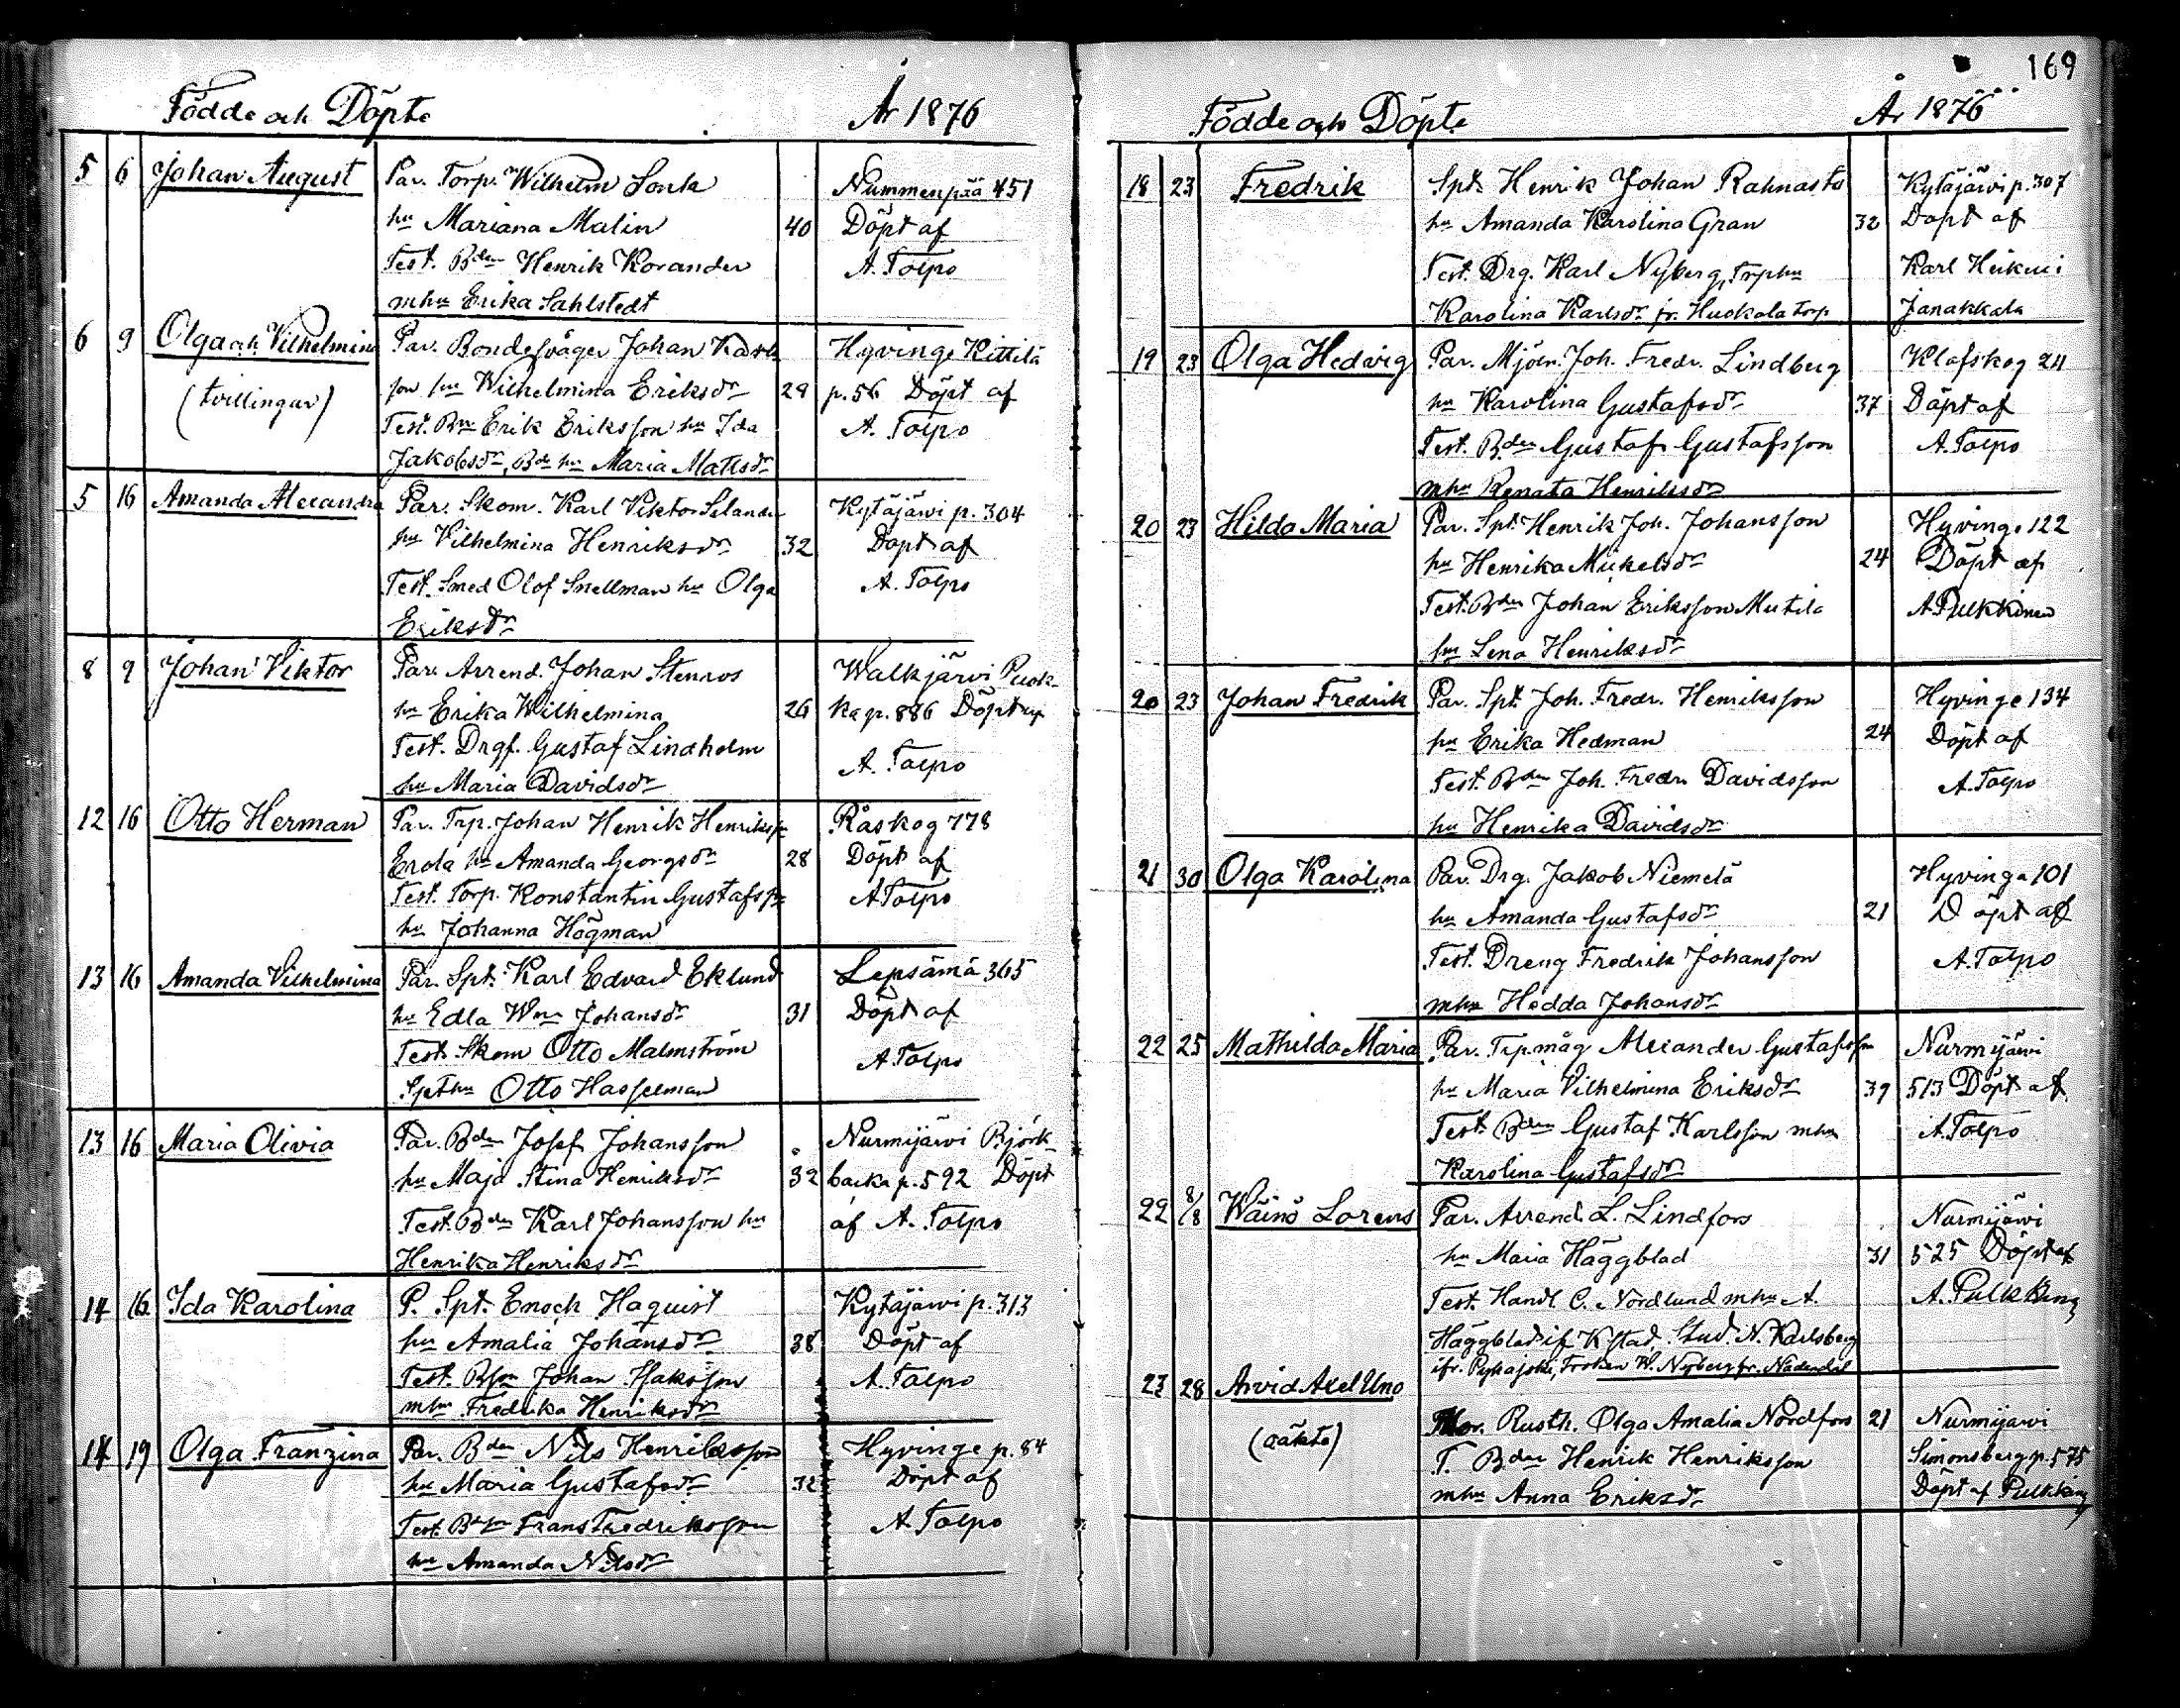 169
Födde och Döpte År 1876
5 6 Johan August Par. Torp. Wilhelm Sonk Nummenpää 451
hu Mariana Malin 40 Döpt af
Test. Bden Henrik Korander A. Talpo
mhu Erika Sahlstedt
6 9 Olga och Vilhelmina Par. Bondesvåger Johan Karls Hyvinge Kittilä
(tvillingar) son hu Wilhelmina Eriksdr 29 p. 56 Döpt af
Test. Bn Erik Eriksson hu Ida A. Talpo
Jakobsdr, Bde hu Maria Mattsdr
5 16 Amanda Alexandra Par. Skom. Karl Viktor Selander Kytäjärvi p. 304
hu Vilhelmina Henriksdr 32 Döpt af
Test. Smed Olof Snellman hu Olga A. Talpo
Eriksdr
8 9 Johan Viktor Par. Arrend. Johan Stenros Walkjärvi Puok-
hu Erika Wilhelmina 26 ka p. 886 Döpt af
Test. Drgf. Gustaf Lindholm A. Talpo
hu Maria Davidsdr
12 16 Otto Herman Par. Trp. Johan Henrik Henriksson Råskog 778
Erola hu Amanda Georgsdr 28 Döpt af
Test. Torp. Konstantin Gustafsson A Talpo
hu Johanna Högman
13 16 Amanda Vilhelmina Par. Spt. Karl Edvard Eklund Lepsämä 365
hu Edla Wna Johansdr 31 Döpt af
Test. Skom Otto Malmström A. Talpo
Spthu Otto Hasselman
13 16 Maria Olivia Par. Bden Josef Johansson Nurmijärvi Björk-
hu Maja Stina Henriksdr 32 backa p. 592 Döpt
Test. Bdn Karl Johansson hu af A. Talpo
Henrika Henriksdr
14 16 Ida Karolina P. Spt. Enoch Haquist Kytäjärvi p. 313
hu Amalia Johansdr 38 Döpt af
Test. Bson Johan Isaksson A. Talpo
mhu Fredrika Henriksdr
14 19 Olga Franzina Par. Bden Nils Henriksson Hyvinge p. 84
hu Maria Gustafsdr 32 Döpt af
Test. Bdn Frans Fredriksson A. Talpo
hu Amanda Nilsdr
Födde och Döpte År 1876
18 23 Fredrik Spt. Henrik Johan Rahnasto Kytäjärvi p. 307
hu Amanda Karolina Gran 32 Döpt af
Test. Drg. Karl Nyberg, Trphu Karl Heikel i
Karolina Karlsdr fr. Huokala torp Janakkala
19 23 Olga Hedvig Par. Mjöln. Joh. Fredr. Lindberg Klöfskog 24
hu Karolina Gustafsdr 37 Döpt af
Test. Bden Gustaf Gustafsson A. Talpo
mhu Renata Henriksdr
20 23 Hilda Maria Par. Spt. Henrik Joh. Johansson Hyvinge 122
hu Henrika Mickelsdr 24 Döpt af
Test. Bden Johan Eriksson Mutila A. Pulkkinen
hu Lena Henriksdr
20 23 Johan Fredrik Par. Spt. Joh. Fredr. Henriksson Hyvinge 134
hu Erika Hedman 24 Döpt af
Test. Bdn Joh. Fredr Davidsson A. Talpo
hu Henrika Davidsdr
21 30 Olga Karolina Par. Drg. Jakob Niemelä Hyvinga 101
hu Amanda Gustafsdr 21 Döpt af
Test. Dreng Fredrik Johansson A. Talpo
mhu Hedda Johansdr
22 25 Mathilda Maria Par. Trpmåg Alexander Gustafsson Nurmijärvi
hu Maria Vilhelmina Eriksdr 39 513 Döpt af
Test. Bden Gustaf Karlsson mhu A. Talpo
Karolina Gustafsdr
22 8/8 Wäinö Lorens Par. Arrend. L. Lindfors Nurmijärvi
hu Maria Häggblad 31 525 Döpt af
Test. Handl C. Nordlund mhu A. A. Pulkking
Häggblad if Kstad. Stud. N. Karlsberg
ifr. Fröken W. Nyberg fr. Nådendal
23 28 Arvid Axel Uno
(oäkta) Mor. Rusth. Olga Amalia Nordfors 21 Nurmijärvi
T. Bden Henrik Henriksson Simonsberg p. 575
mhu Anna Eriksdr Döpt af Pulkking